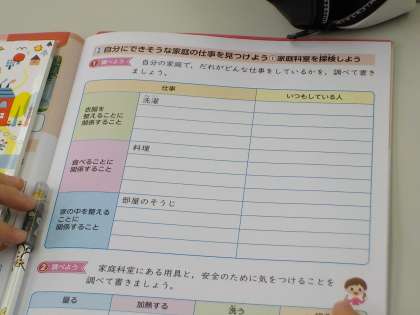 1 自分にできそうな家庭の仕事を見つけよう①家庭科室を探検しよう
1 調べよう 自分の家庭で、だれがどんな仕事をしているかを、調べて書き
ましょう。
仕事 いつもしている人
衣服を
整えることに
関係すること
洗濯
食べることに
関係すること
料理
家の中を整える
ことに
関係すること
部屋のそうじ
2 調べよう 家庭科室にある用具と、安全のために気をつけることを
調べて書きましょう。
量る 加熱する 洗う